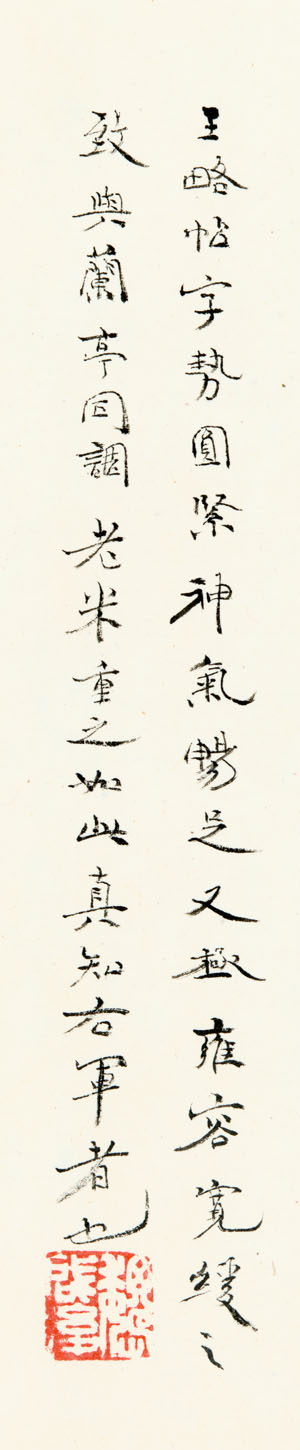 王略帖字勢圓緊神氣暢足又極雍容寬緩之
致與蘭亭同調老米重之如此真知右軍者也